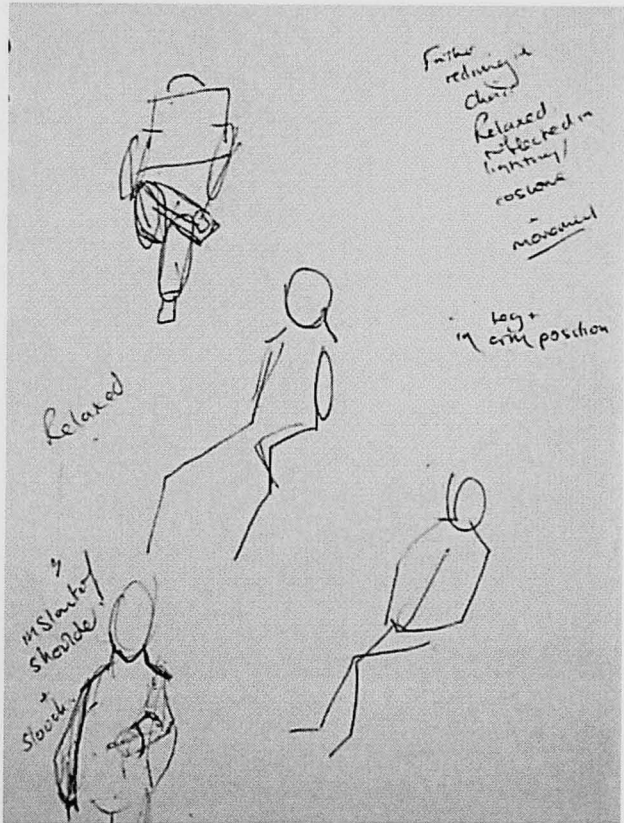 Father
reclining in
Chair
Relaxed
reflected in
lighting/
costume
+
movement
in leg +
arm position
Relaxed
in slant of
shoulder
+
slouch.